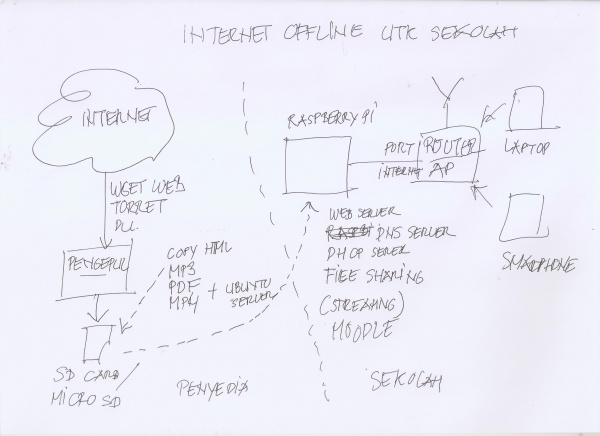 INTERNET OFFLINE UTK SEKOLAH
INTERNET
WGET WEB
TORRET
DLL.
PENGEPUL
COPY HTML
MP3
PDF
MP4
+ UBUNTU
SERVER
SD CARD
MICRO SD
PENYEDIA
RASPBERRY PI
PORT
INTERNET
ROUTER
AP
LAPTOP
SMARPHONE
WEB SERVER
DNS SERVER
DHCP SERVER
FILE SHARING
(STREAMING)
MOODLE
SEKOLAH